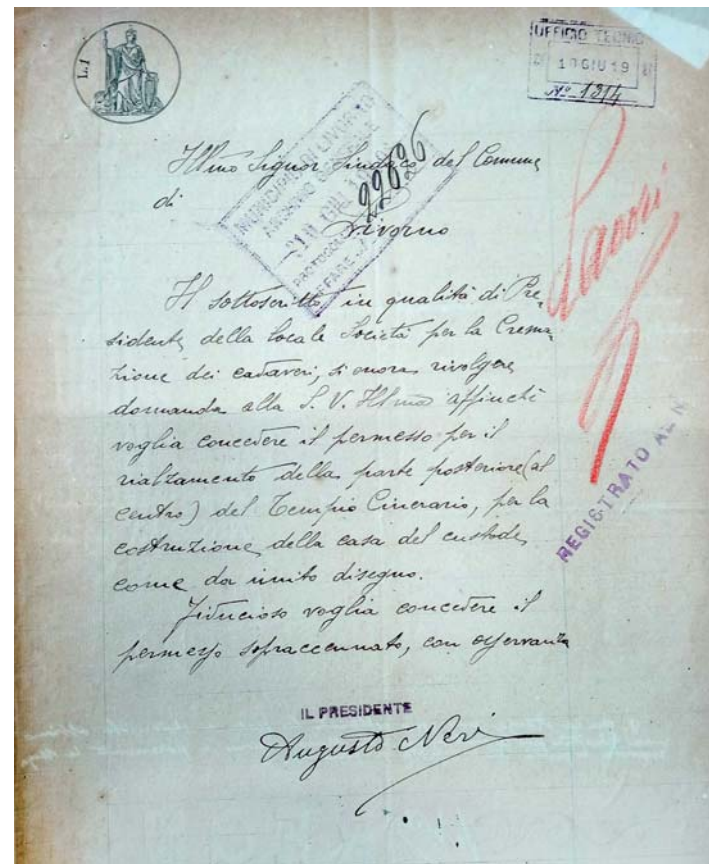 L.1
UFFICIO TECNICO
10 GIU 19
Nº 1314
Illmo Signor Sindaco del Comune
di
Livorno
MUNICIPIO DI LIVORNO
ARCHIVIO GENERALE
GIU.
PROTOCOLLO
AFFARE
22696
Lavori
Il sottoscritto, in qualità di Pre-
sidente della locale Società per la Crema-
zione dei cadaveri, si onora rivolgere
domanda alla S. V. Illma affinchè
voglia concedere il permesso per il
rialzamento della parte posteriore (al
centro) del Tempio Cinerario, per la
costruzione della casa del custode,
come da unito disegno.
Fiducioso voglia concedere il
permesso sopraccennato, con osservanza
REGISTRATO AL N
IL PRESIDENTE
Augusto Neri